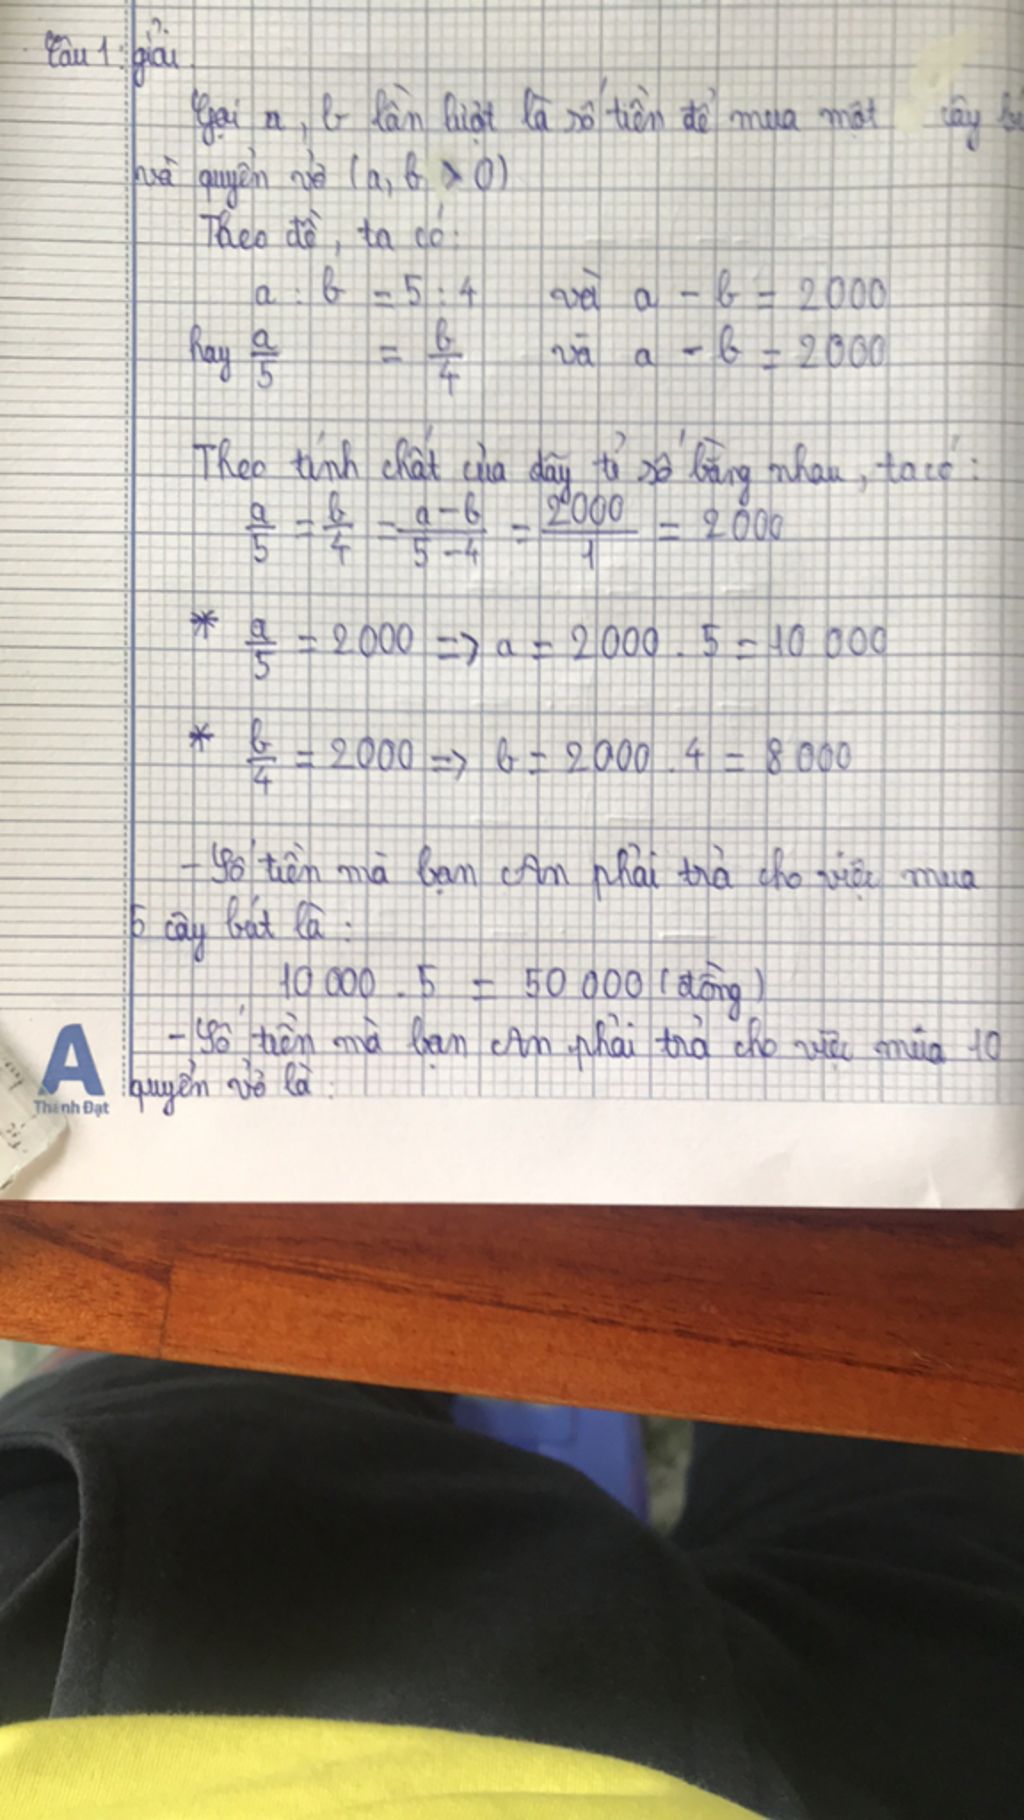 Câu 1: giải
Gọi a, b lần lượt là số tiền để mua một cây
và quyển vở (a, b > 0)
Theo đề, ta có:
a : b = 5 : 4 và a - b = 2000
hay a/5 = b/4 và a - b = 2000
Theo tính chất của dãy tỉ số bằng nhau, ta có:
a/5 = b/4 = a-b/5-4 = 2000/1 = 2000
* a/5 = 2000 => a = 2000 . 5 = 10 000
* b/4 = 2000 => b = 2000 . 4 = 8 000
- Số tiền mà bạn An phải trả cho việc mua
5 cây bút là :
10 000 . 5 = 50 000 (đồng)
- Số tiền mà bạn An phải trả cho việc mua 10
quyển vở là :
A
Thành Đạt